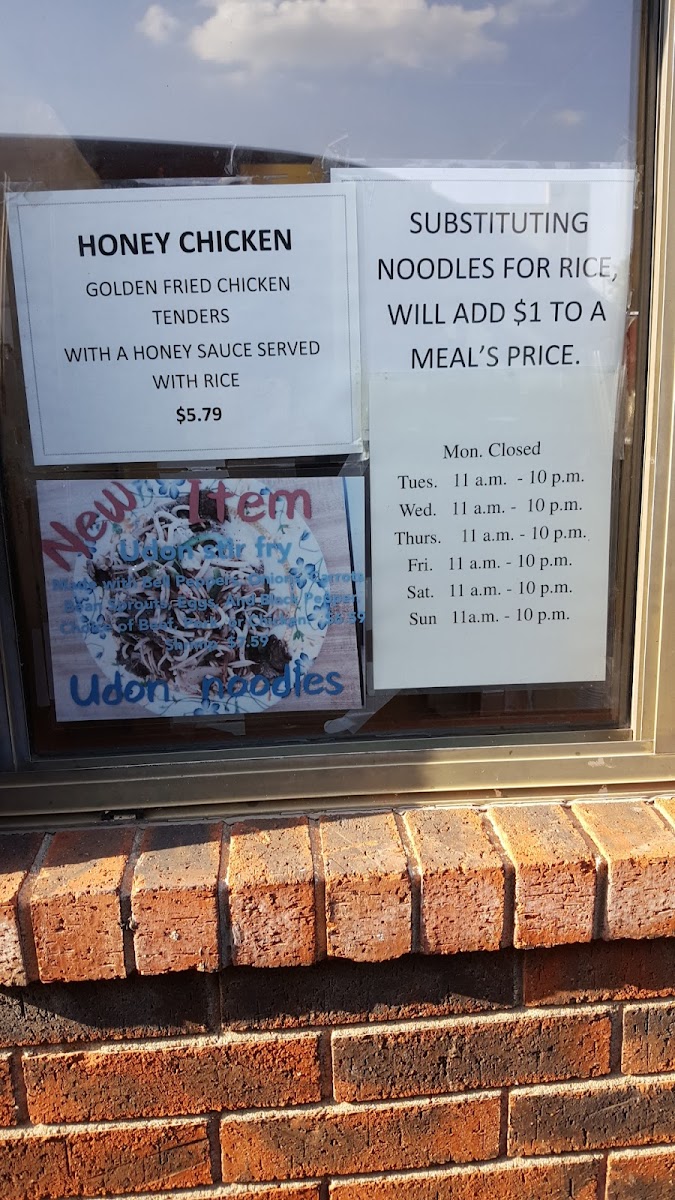 HONEY CHICKEN
GOLDEN FRIED CHICKEN
TENDERS
WITH A HONEY SAUCE SERVED
WITH RICE
$5.79
SUBSTITUTING
NOODLES FOR RICE,
WILL ADD $1 TO A
MEAL'S PRICE.
New Item
Udon stir fry
Made with Bell Peppers, Onions, Carrots
Bean Sprouts, Eggs, And Black Pepper
Choice of Beef, Pork, Or Chicken
Shrimp
Udon noodles
Mon. Closed
Tues. 11 a.m. - 10 p.m.
Wed. 11 a.m. - 10 p.m.
Thurs. 11 a.m. - 10 p.m.
Fri. 11 a.m. - 10 p.m.
Sat. 11 a.m. - 10 p.m.
Sun 11a.m. - 10 p.m.